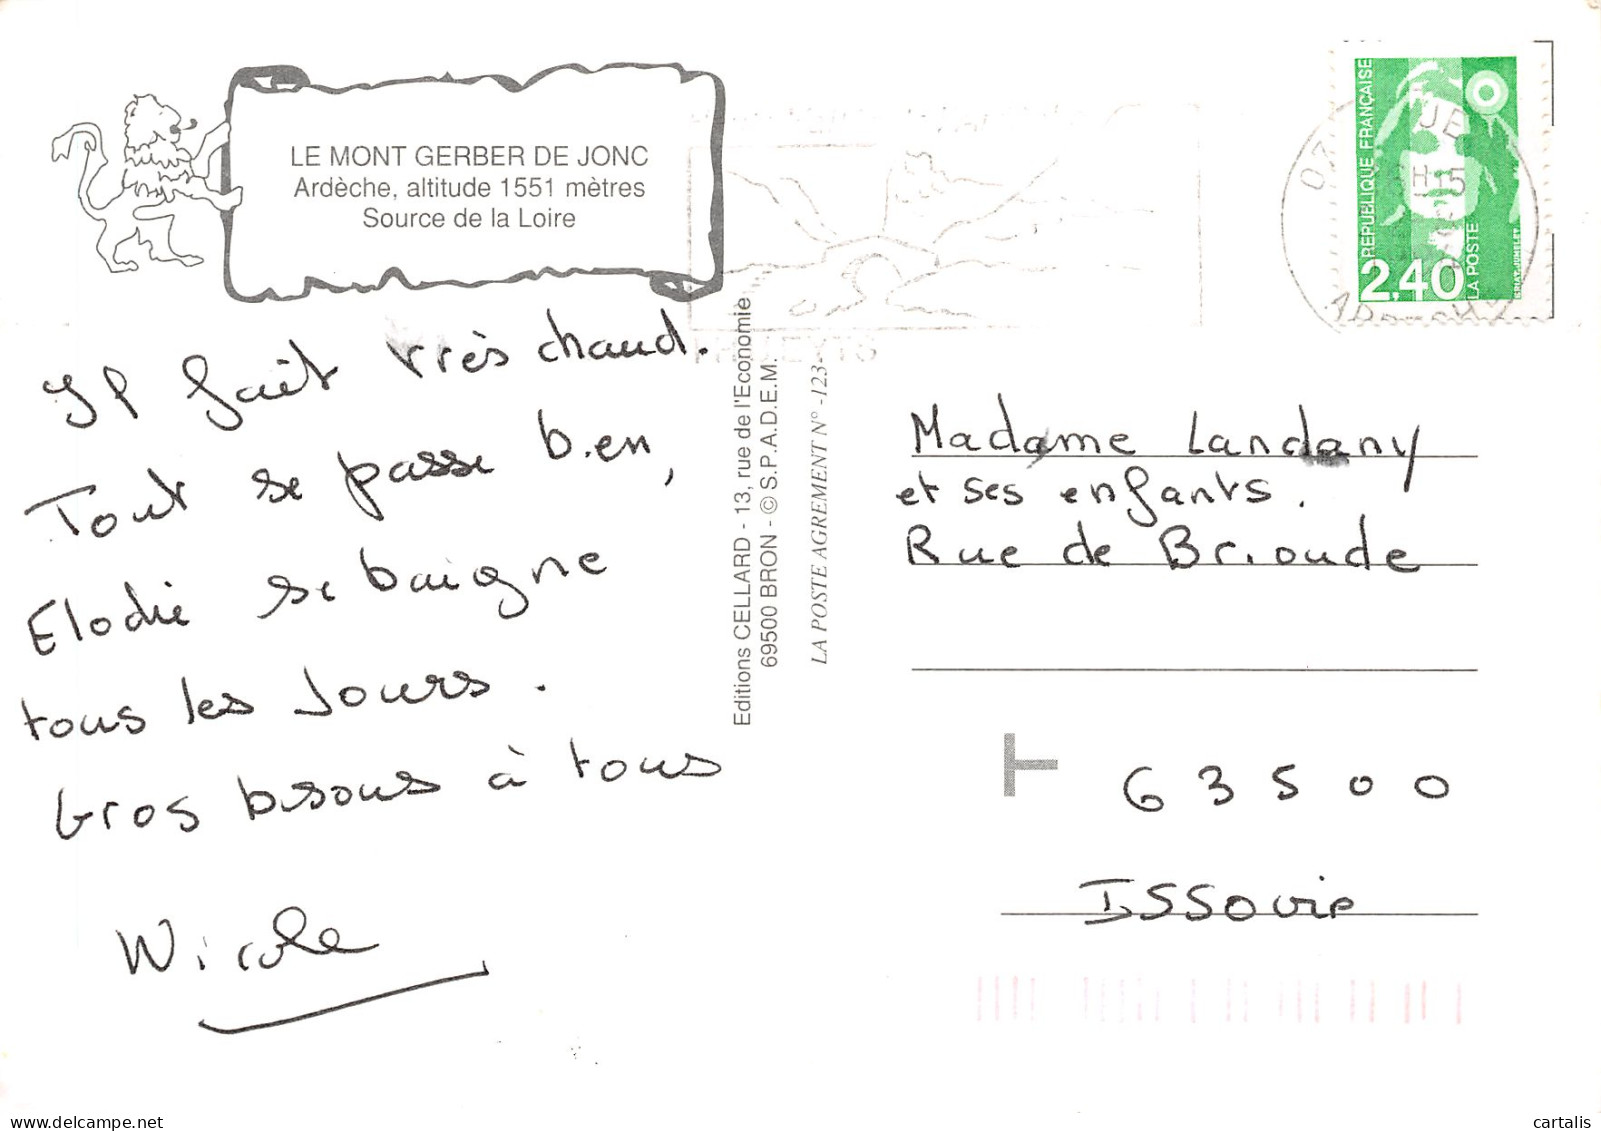 LE MONT GERBER DE JONC
Ardèche, altitude 1551 mètres
Source de la Loire
Il fait très chaud.
Tout se passe bien,
Elodie se baigne
tous les Jours.
Gros bisous à tous
Nicole
Editions CELLARD - 13, rue de l'Economie
69500 BRON - © S.P.A.D.E.M.
LA POSTE AGREMENT N° -123-
REPUBLIQUE FRANÇAISE
2,40
LA POSTE
BRIAT-JUMELET
Madame Landany
et ses enfants.
Rue de Brioude
63500
ISSOire
cartalis